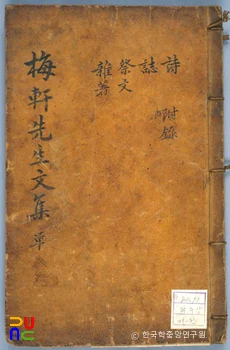 詩 附錄
誌
祭文
雜著
梅軒先生文集 單
ⓒ 한국학중앙연구원